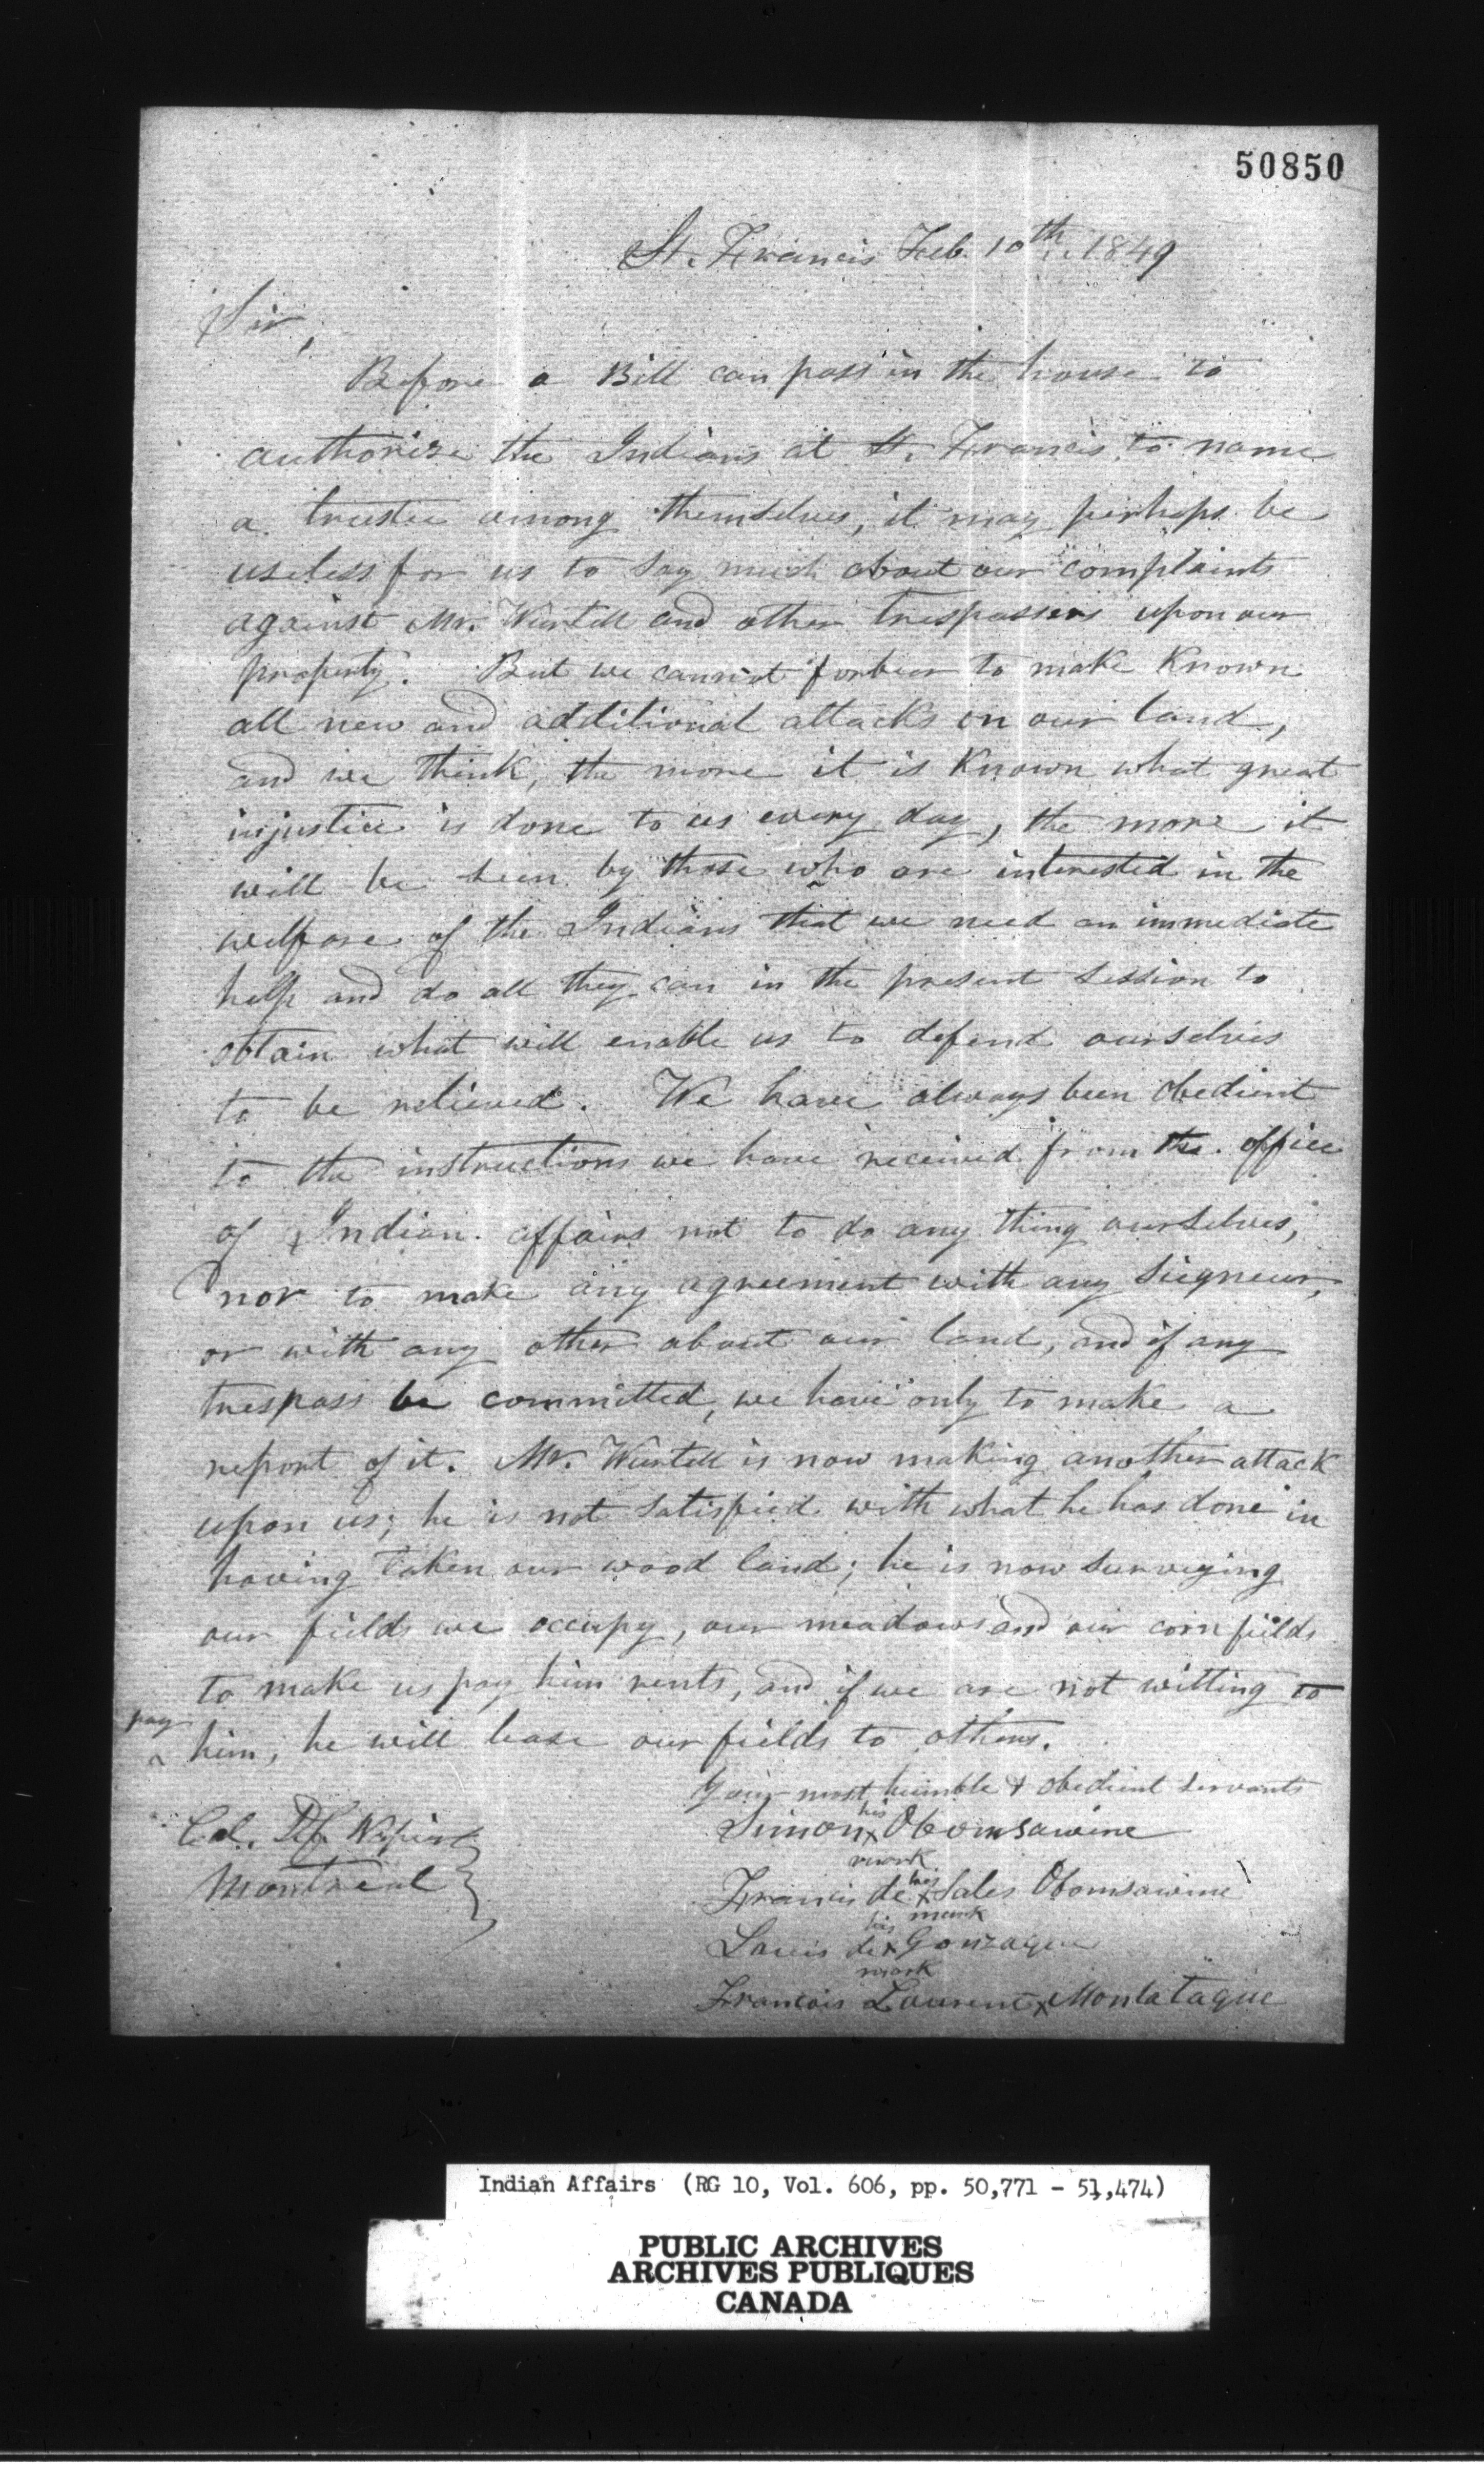 50850
St. Francis Feb. 10th. 1849
Sir,
Before a Bill can pass in the house to
authorise the Indians at St. Francis to name
a trustee among themselves, it may perhaps be
useless for us to say much about our complaints
against Mr. Wurtell and other trespassers upon our
property. But we cannot forbear to make known
all new and additional attacks on our land,
and we think, the more it is known what great
injustice is done to us every day, the more it
will be seen by those who are interested in the
welfare of the Indians that we need an immediate
help and do all they can in the present session to
obtain what will enable us to defend ourselves
to be relieved. We have always been obedient
to the instructions we have received from the office
of Indian affairs not to do any thing ourselves,
nor to make any agreement with any Siegneur,
or with any other about our land, and if any
trespass be committed, we have only to make a
report of it. Mr. Wurtell is now making another attack
upon us; he is not satisfied with what he has done in
having taken our wood land; he is now surveying
our fields we occupy, our meadows and our corn fields
to make us pay him rents, and if we are not willing to
pay
him, he will lease our fields to others.
Your most humble & obedient servants
his
Simon x Obomsawine
mark
Col. Napier
Montreal
his
Francis de x Sales Obomsawine
mark
his
Louis de x Gonzague
mark
Francois Laurent x Montataque
Indian Affairs (RG 10, Vol. 606, pp. 50,771 - 51,474)
PUBLIC ARCHIVES
ARCHIVES PUBLIQUES
CANADA